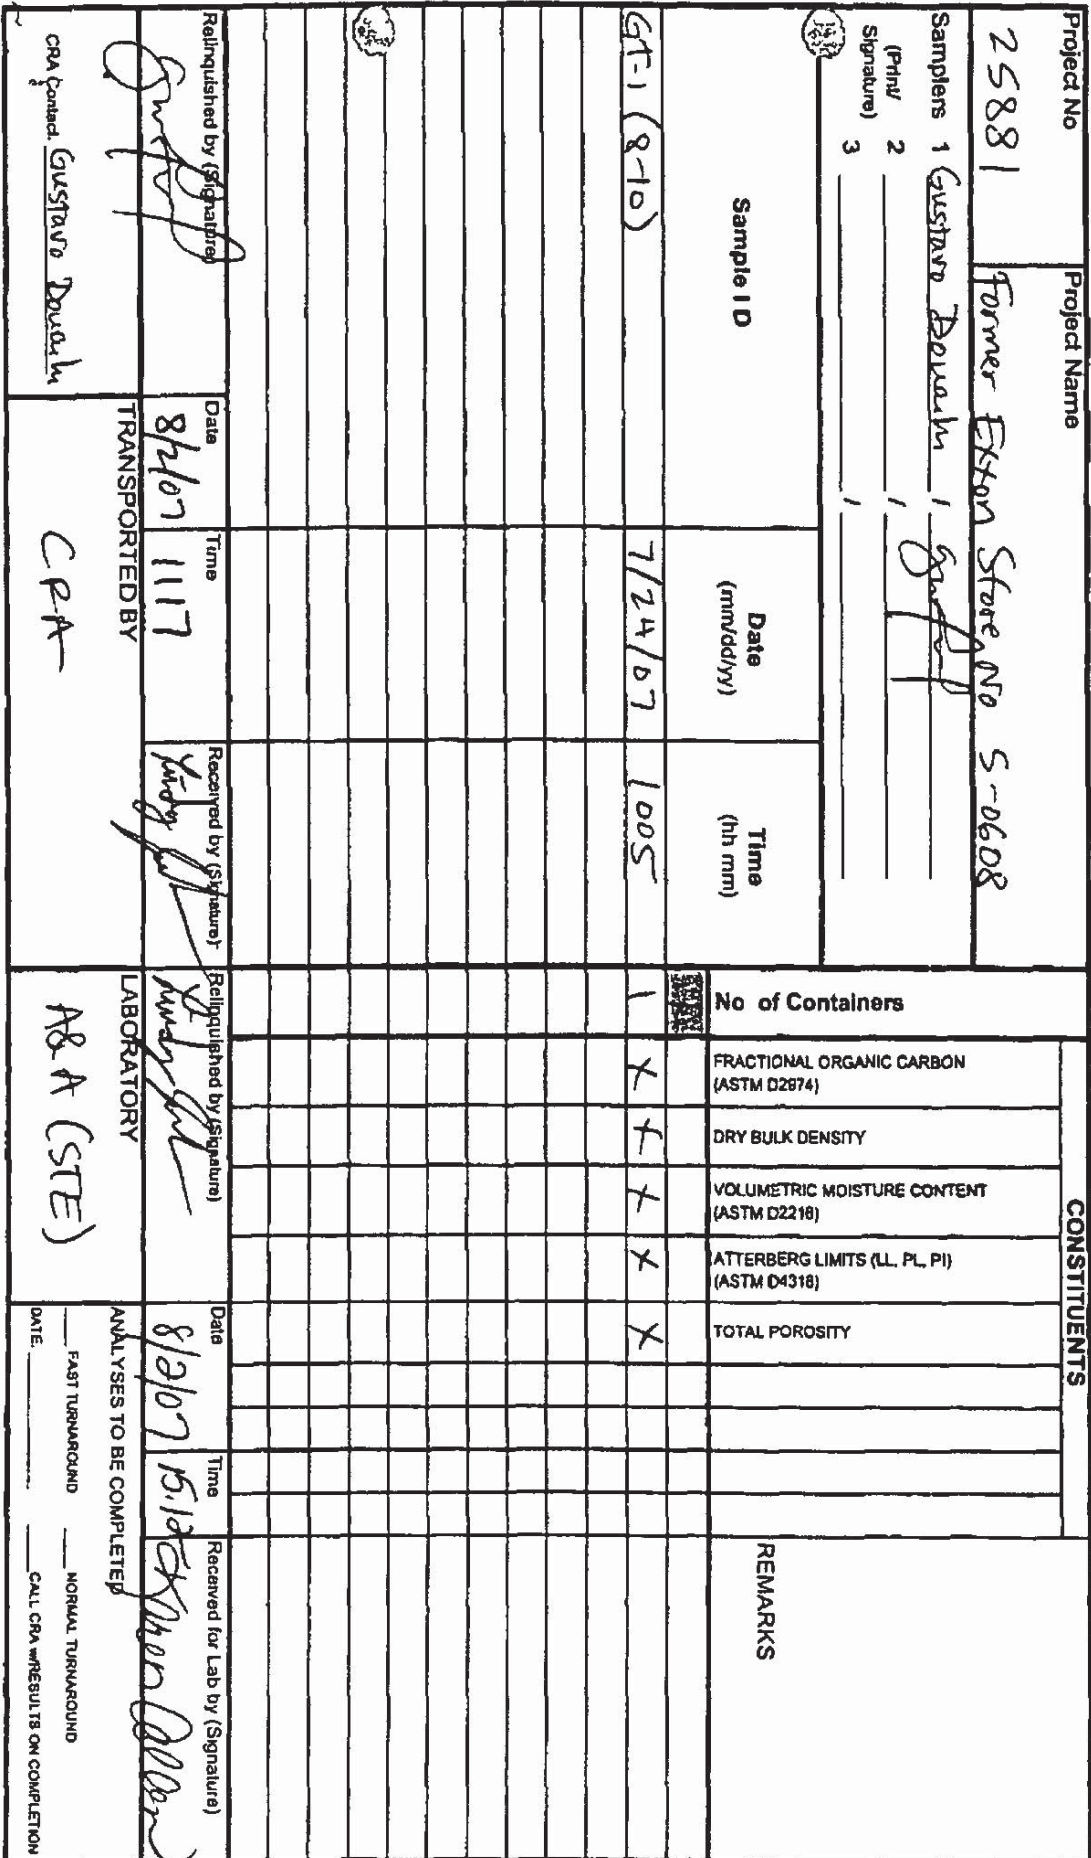 Project No
25881
Project Name
Former Exxon Store No S-0608
Samplers 1 Gustavo /
(Print/ 2 /
Signature) 3 /
Sample I D
Date
(mm/dd/yy)
Time
(hh mm)
No of Containers
CONSTITUENTS
FRACTIONAL ORGANIC CARBON
(ASTM D2974)
DRY BULK DENSITY
VOLUMETRIC MOISTURE CONTENT
(ASTM D2216)
ATTERBERG LIMITS (LL, PL, PI)
(ASTM D4318)
TOTAL POROSITY
REMARKS
GT-1 (8-10) 7/24/07 1005 1 X X X X X
Relinquished by (Signature)
Date
8/2/07
Time
1117
Received by (Signature)
Relinquished by (Signature)
Date
8/2/07
Time
Received for Lab by (Signature)
CRA Contact. Gustavo
TRANSPORTED BY
CRA
LABORATORY
A&A (STE)
ANALYSES TO BE COMPLETED
___ FAST TURNAROUND ___ NORMAL TURNAROUND
DATE. ___ ___ CALL CRA w/RESULTS ON COMPLETION